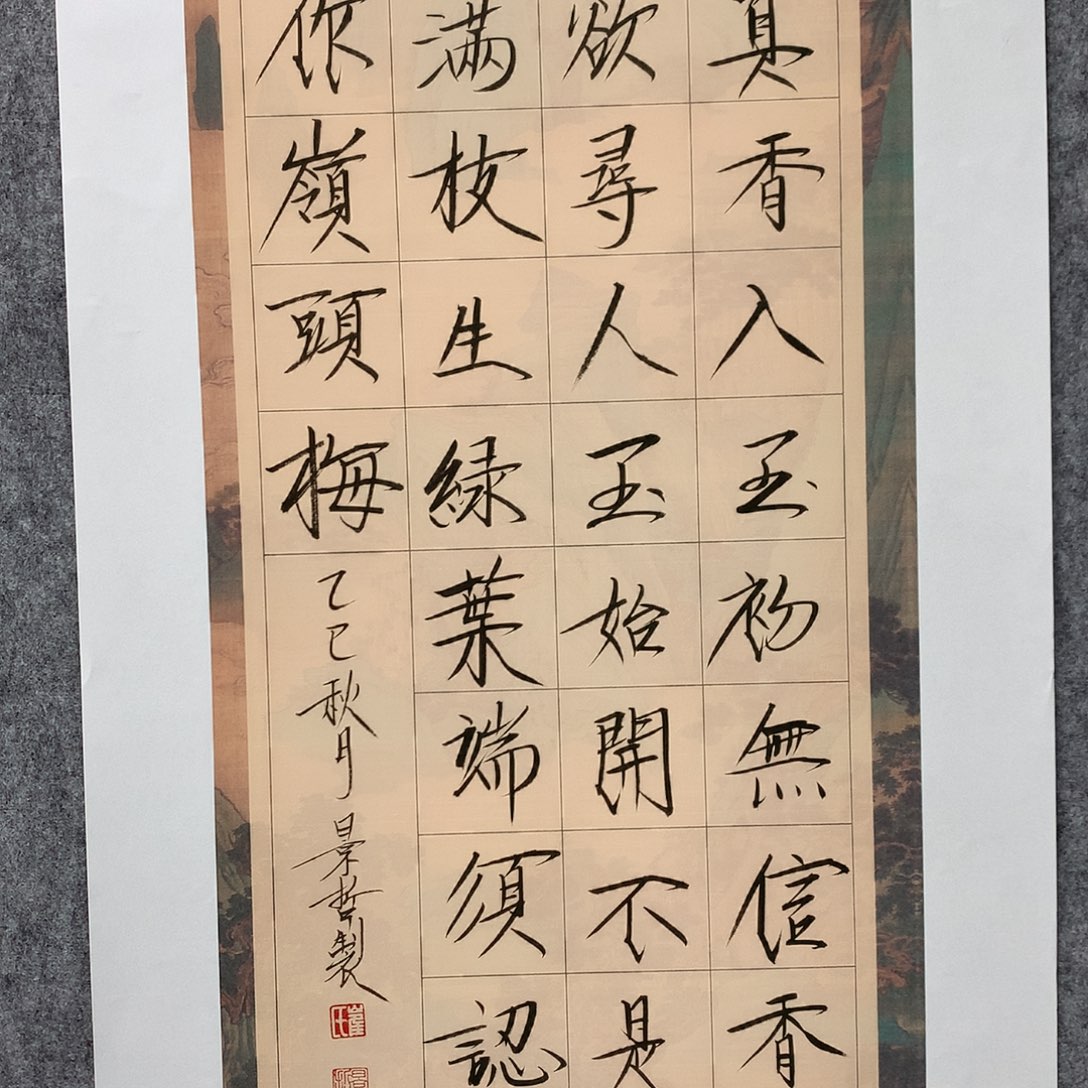 真香入玉初無信香
欲尋人玉始開不是
滿枝生綠葉端須認
作嶺頭梅
乙巳秋月景哲製
崔氏